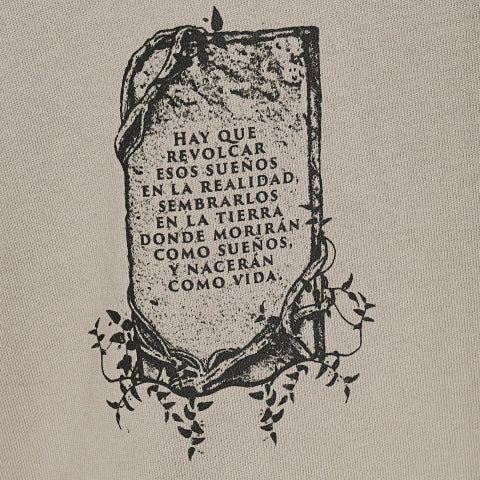 HAY QUE
REVOLCAR
ESOS SUEÑOS
EN LA REALIDAD,
SEMBRARLOS
EN LA TIERRA
DONDE MORIRÁN
COMO SUEÑOS,
Y NACERÁN
COMO VIDA.